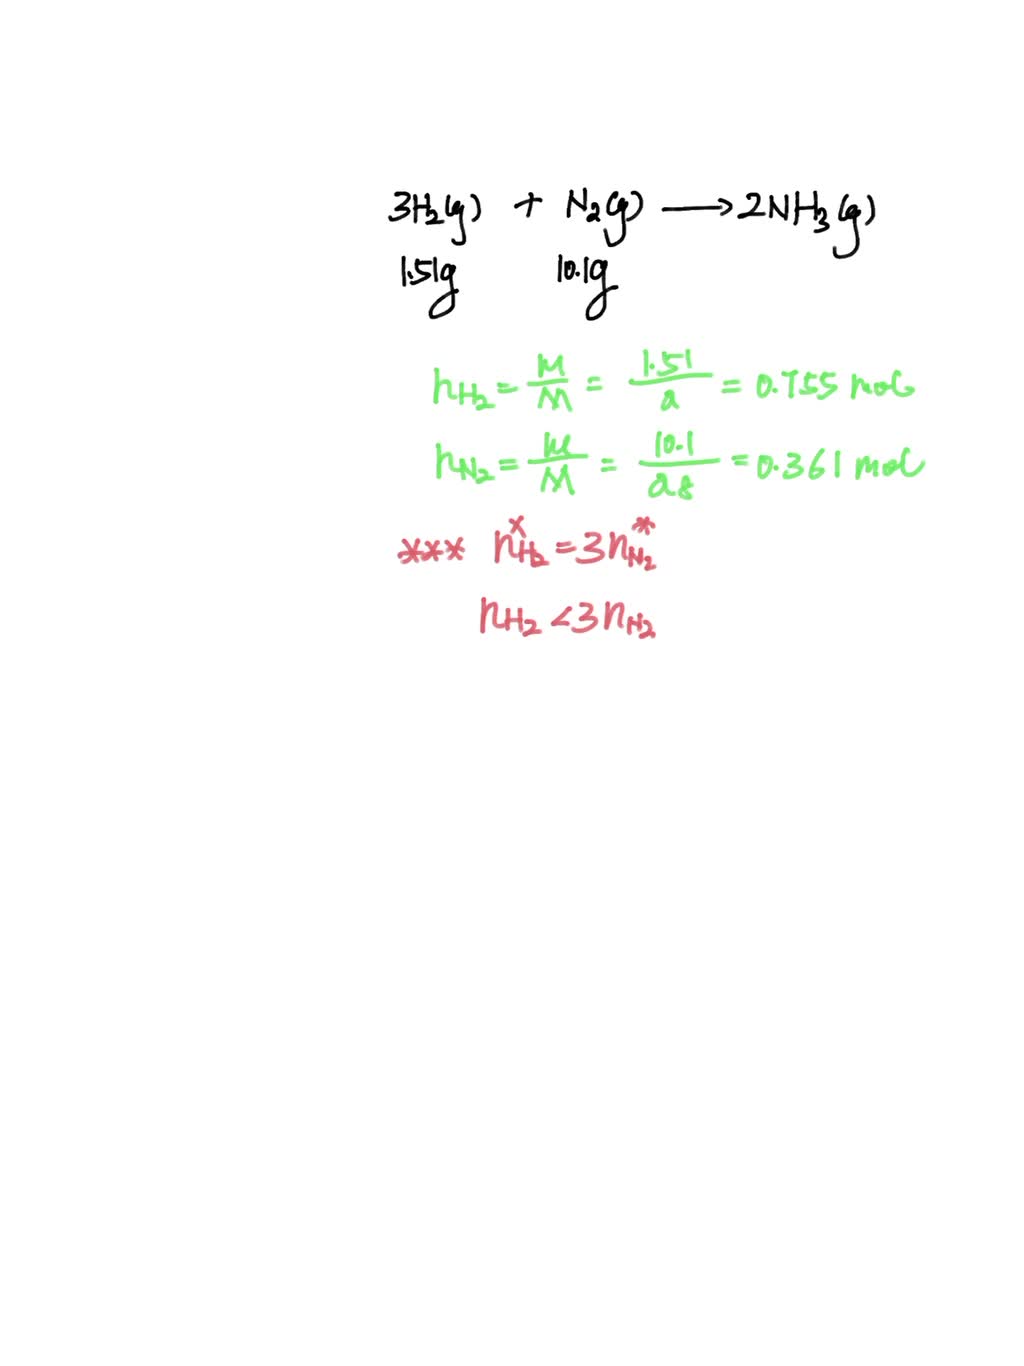 3H₂(g) + N₂(g) ⟶ 2NH₃(g)
1.51g 10.1g
n_H₂ = m/M = 1.51/2 = 0.755 mol
n_N₂ = m/M = 10.1/28 = 0.361 mol
*** n*_H₂ = 3n*_N₂
n_H₂ < 3n_N₂